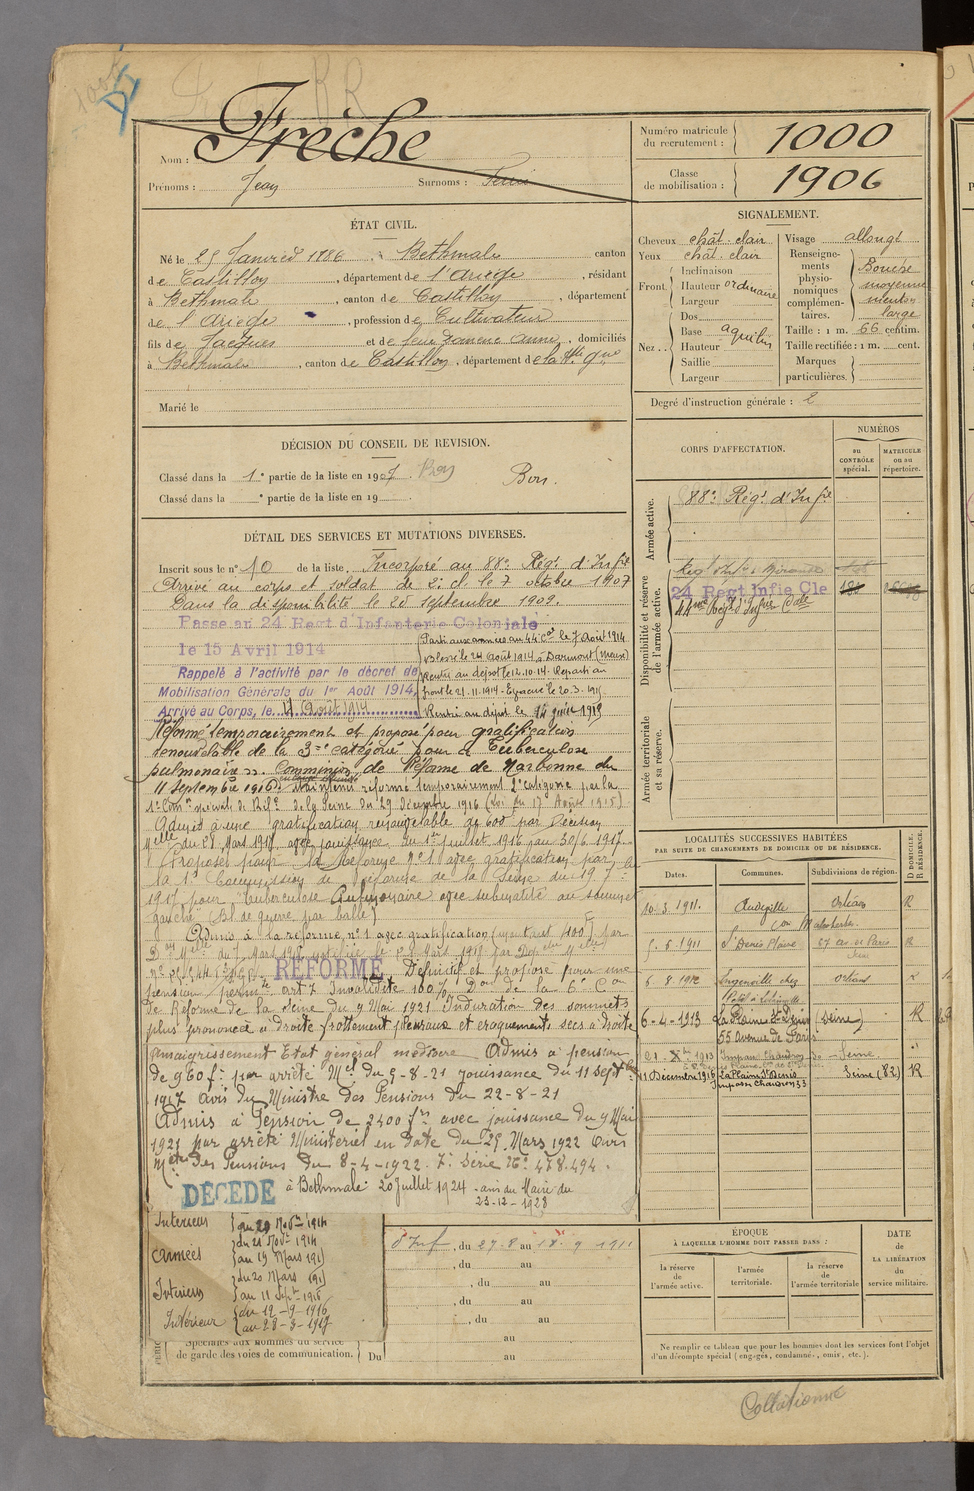 Frèche
Nom :
Prénoms : Jean Surnoms :
Numéro matricule du recrutement : 1000
Classe de mobilisation : 1906
ÉTAT CIVIL.
Né le 25 Janvier 1886, à Bethmale canton
de Castillon, département de l'Ariège, résidant
à Bethmale, canton de Castillon, département
de l'Ariège, profession de Cultivateur
fils de Jacques et de feue Domenc Anne, domiciliés
à Bethmale, canton de Castillon, département de la Hte Gne
Marié le
SIGNALEMENT.
Cheveux chât. clair
Yeux chât. clair
Front Inclinaison
Hauteur ordinaire
Largeur
Nez Dos
Base aquilin
Hauteur
Saillie
Largeur
Visage allongé
Renseignements physionomiques complémentaires. Bouche moyenne menton large
Taille : 1 m. 66 centim.
Taille rectifiée : 1 m. cent.
Marques particulières.
Degré d'instruction générale : 2
DÉCISION DU CONSEIL DE REVISION.
Classé dans la 1e partie de la liste en 1907. Bon
Bon.
Classé dans la e partie de la liste en 19
CORPS D'AFFECTATION.
NUMÉROS
au CONTRÔLE spécial.
MATRICULE ou au répertoire.
Armée active.
88e Régt d'Infie
Disponibilité et réserve de l'armée active.
24 Regt Infie Cle
44me Régt d'Infie Cole
Armée territoriale et sa réserve.
DÉTAIL DES SERVICES ET MUTATIONS DIVERSES.
Inscrit sous le n° 10 de la liste. Incorporé au 88e Régt d'Infie
Arrivé au corps et soldat de 2e cl. le 7 octobre 1907
Dans la disponibilité le 25 septembre 1909.
Passe au 24 Regt d'Infanterie Coloniale
le 15 Avril 1914
Rappelé à l'activité par le décret de
Mobilisation Générale du 1er Août 1914,
Arrivé au Corps, le 4 Août 1914
Parti aux armées au 44e Cal le 7 Août 1914
Blessé le 24 Août 1914 à (Meuse)
Rentré au dépôt le 12.10.14. Reparti au
front le 21.11.1914 - Evacué le 20.3.1915
Rentré au dépôt le
Réformé temporairement et proposé pour gratification
renouvelable de la 3me catégorie pour "Tuberculose
pulmonaire". Commission de Réforme de Narbonne du
11 Septembre 1915. Maintenu réformé temporairement 2e catégorie par la
1e Comon spéciale de Réfe de la Seine du 29 Décembre 1916 (Loi du 17 Août 1915)
Admis à une gratification renouvelable de 600 par Décision
Mielle du 28 Mars 1917 avec jouissance du 1er juillet 1916 au 30/6 1917.
Proposé pour la Réforme n°1 avec gratification par
la 1e Commission de réforme de la Seine du 19 7
1917 pour "tuberculose Pulmonaire avec submatité au sommet
gauche" (Bl. de guerre par balle)
Admis à la réforme n°1 avec gratification
RÉFORMÉ Définitif et proposé pour une
pension permte art 7 Invalidité 100% Don de la 6e Con
de Réforme de la Seine du 9 Mai 1921 Induration des sommets
plus prononcée à droite frottement pleuraux et craquements secs à droite
Amaigrissement Etat général médiocre Admis à pension
de 960 fr par arrêté Mel du 5-8-21 jouissance du 11 Septbre
1917 avis du Ministre des Pensions du 22-8-21
Admis à Pension de 2400 frs avec jouissance du 9 Mai
1921 par arrêté Ministériel en date du 25 Mars 1922 avis
Mtre des Pensions du 8-4-1922. 7e Série N° 478.494.
DÉCÉDÉ à Bethmale 20 Juillet 1924 - avis du Maire du
23-12-1928
LOCALITÉS SUCCESSIVES HABITÉES
PAR SUITE DE CHANGEMENTS DE DOMICILE OU DE RÉSIDENCE.
Dates. Communes. Subdivisions de région. D DOMICILE. R RÉSIDENCE.
10.3.1911. Audeville con Malesherbes Orléans R
5.6.1911 St Denis Plaine Seine R
6.8.1912 Orléans
6-4-1913 La Plaine St Denis (Seine) R
55 avenue de Paris
21. Xbre 1913 Impasse Chaudron Seine
11 Décembre 1916 La Plaine St Denis Seine (B2) R
Impasse Chaudron 33
Intérieur au 20 Novbre 1914
Armées du 21 Novbre 1914
au 19 Mars 1915
Intérieur du 20 Mars 1915
au 11 Septbre 1915
Intérieur du 12-9-1916
au 28-3-1917
d'Inf, du 27.8 au 18.9 1911
, du au
, du au
, du au
, du au
au
Spéciales aux hommes du service
de garde des voies de communication. Du au
ÉPOQUE
À LAQUELLE L'HOMME DOIT PASSER DANS :
la réserve de l'armée active.
l'armée territoriale.
la réserve de l'armée territoriale
DATE de LA LIBÉRATION du service militaire.
Ne remplir ce tableau que pour les hommes dont les services font l'objet
d'un décompte spécial (engagés, condamnés, omis, etc.).
Collationné